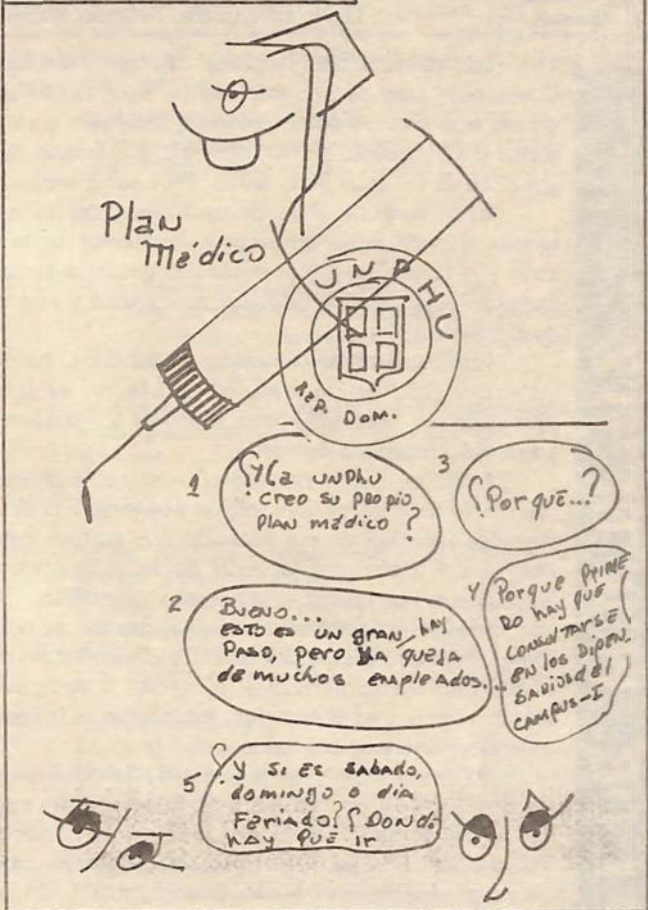 Plan
Médico
UNPHU
REP. DOM.
1
¿Y la UNPhu
creo su propio
Plan médico?
2
Bueno...
esto es un gran
Paso, pero hay queja
de muchos empleados...
3
¿Por qué...?
4
Porque PRIME
RO hay que
consultarse
en los Dipen
sarios del
campus-I
5
¿Y si es sabado,
domingo o dia
Feriado? ¿Donde
hay que ir